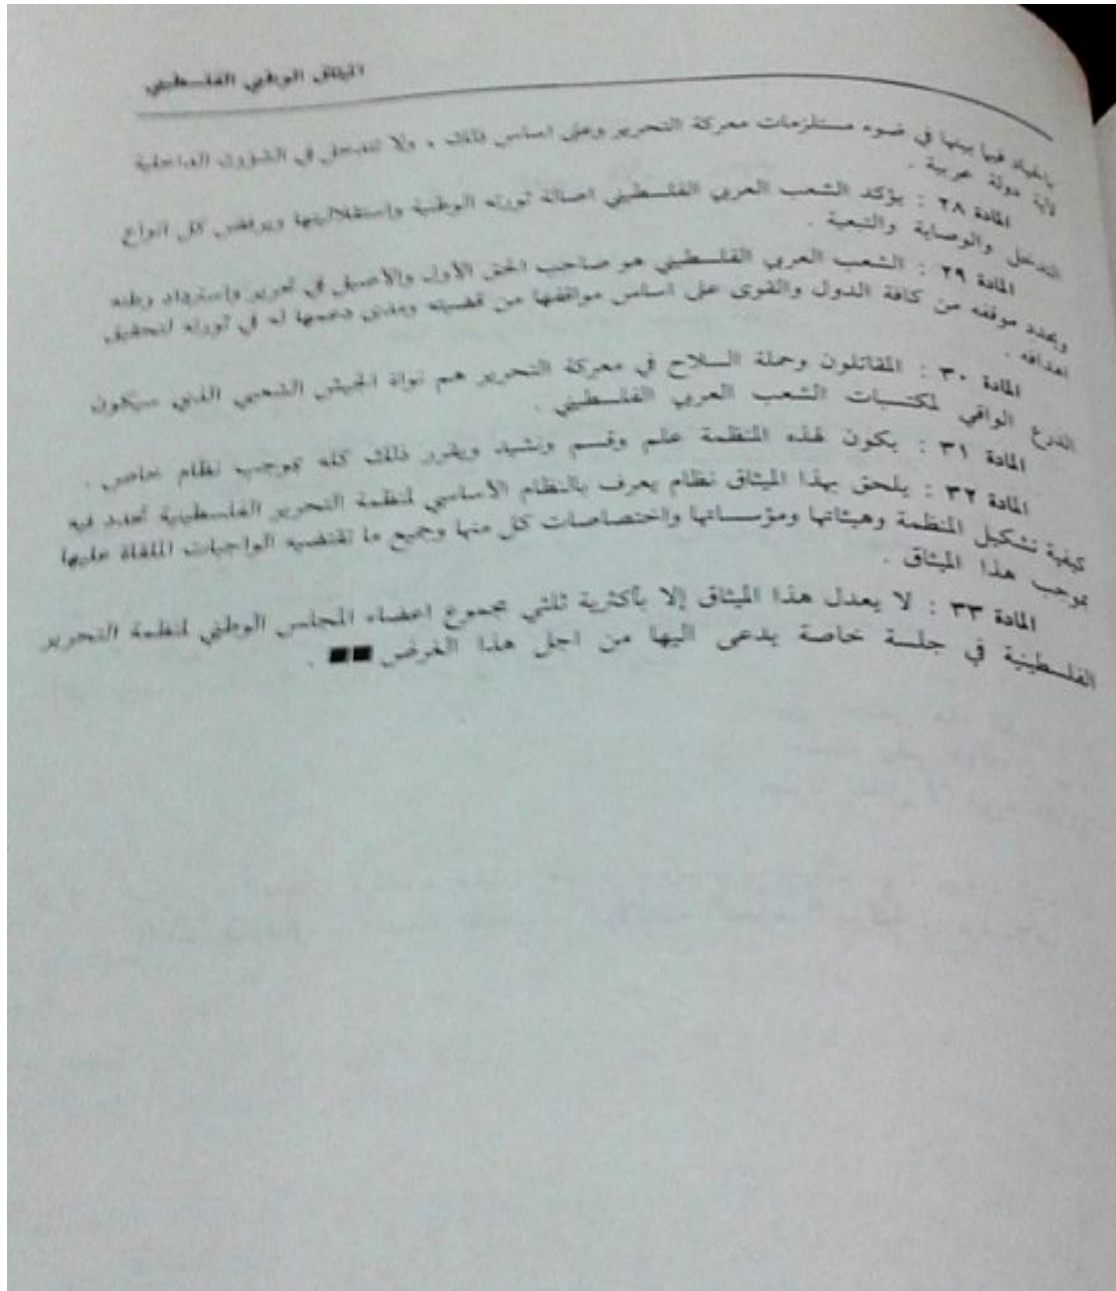 الميثاق الوطني الفلسطيني
بالحياد فيما بينها في ضوء مستلزمات معركة التحرير وعلى اساس ذلك ، ولا تتدخل في الشؤون الداخلية
لأية دولة عربية .
المادة ٢٨ : يؤكد الشعب العربي الفلسطيني اصالة ثورته الوطنية واستقلاليتها ويرفض كل انواع
التدخل والوصاية والتبعية .
المادة ٢٩ : الشعب العربي الفلسطيني هو صاحب الحق الأول والأصيل في تحرير واسترداد وطنه
ويحدد موقفه من كافة الدول والقوى على اساس مواقفها من قضيته ومدى دعمها له في ثورته لتحقيق
اهدافه .
المادة ٣٠ : المقاتلون وحملة السلاح في معركة التحرير هم نواة الجيش الشعبي الذي سيكون
الدرع الواقي لمكتسبات الشعب العربي الفلسطيني .
المادة ٣١ : يكون لهذه المنظمة علم وقسم ونشيد ويقرر ذلك كله بموجب نظام خاص .
المادة ٣٢ : يلحق بهذا الميثاق نظام يعرف بالنظام الأساسي لمنظمة التحرير الفلسطينية تحدد فيه
كيفية تشكيل المنظمة وهيئاتها ومؤسساتها واختصاصات كل منها وجميع ما تقتضيه الواجبات الملقاة عليها
بموجب هذا الميثاق .
المادة ٣٣ : لا يعدل هذا الميثاق إلا بأكثرية ثلثي مجموع اعضاء المجلس الوطني لمنظمة التحرير
الفلسطينية في جلسة خاصة يدعى اليها من اجل هذا الغرض ■■ .